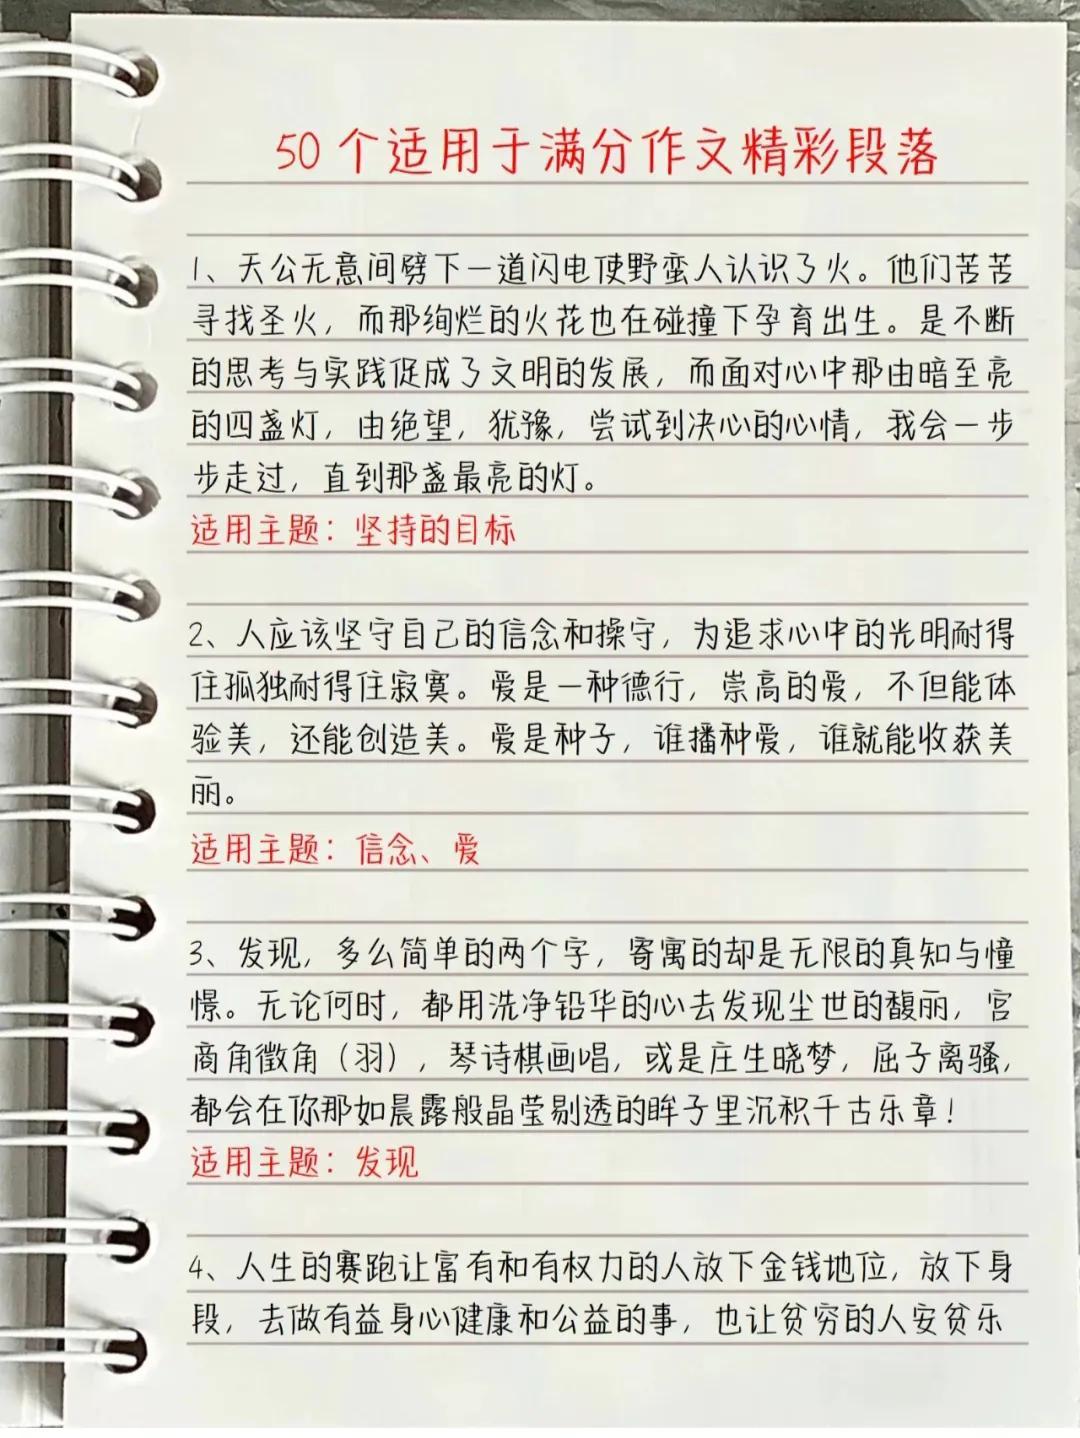 50个适用于满分作文精彩段落
1、天公无意间劈下一道闪电使野蛮人认识了火。他们苦苦
寻找圣火，而那绚烂的火花也在碰撞下孕育出生。是不断
的思考与实践促成了文明的发展，而面对心中那由暗至亮
的四盏灯，由绝望，犹豫，尝试到决心的心情，我会一步
步走过，直到那盏最亮的灯。
适用主题：坚持的目标
2、人应该坚守自己的信念和操守，为追求心中的光明耐得
住孤独耐得住寂寞。爱是一种德行，崇高的爱，不但能体
验美，还能创造美。爱是种子，谁播种爱，谁就能收获美
丽。
适用主题：信念、爱
3、发现，多么简单的两个字，寄寓的却是无限的真知与憧
憬。无论何时，都用洗净铅华的心去发现尘世的馥丽，宫
商角徵角（羽），琴诗棋画唱，或是庄生晓梦，屈子离骚，
都会在你那如晨露般晶莹剔透的眸子里沉积千古乐章！
适用主题：发现
4、人生的赛跑让富有和有权力的人放下金钱地位，放下身
段，去做有益身心健康和公益的事，也让贫穷的人安贫乐